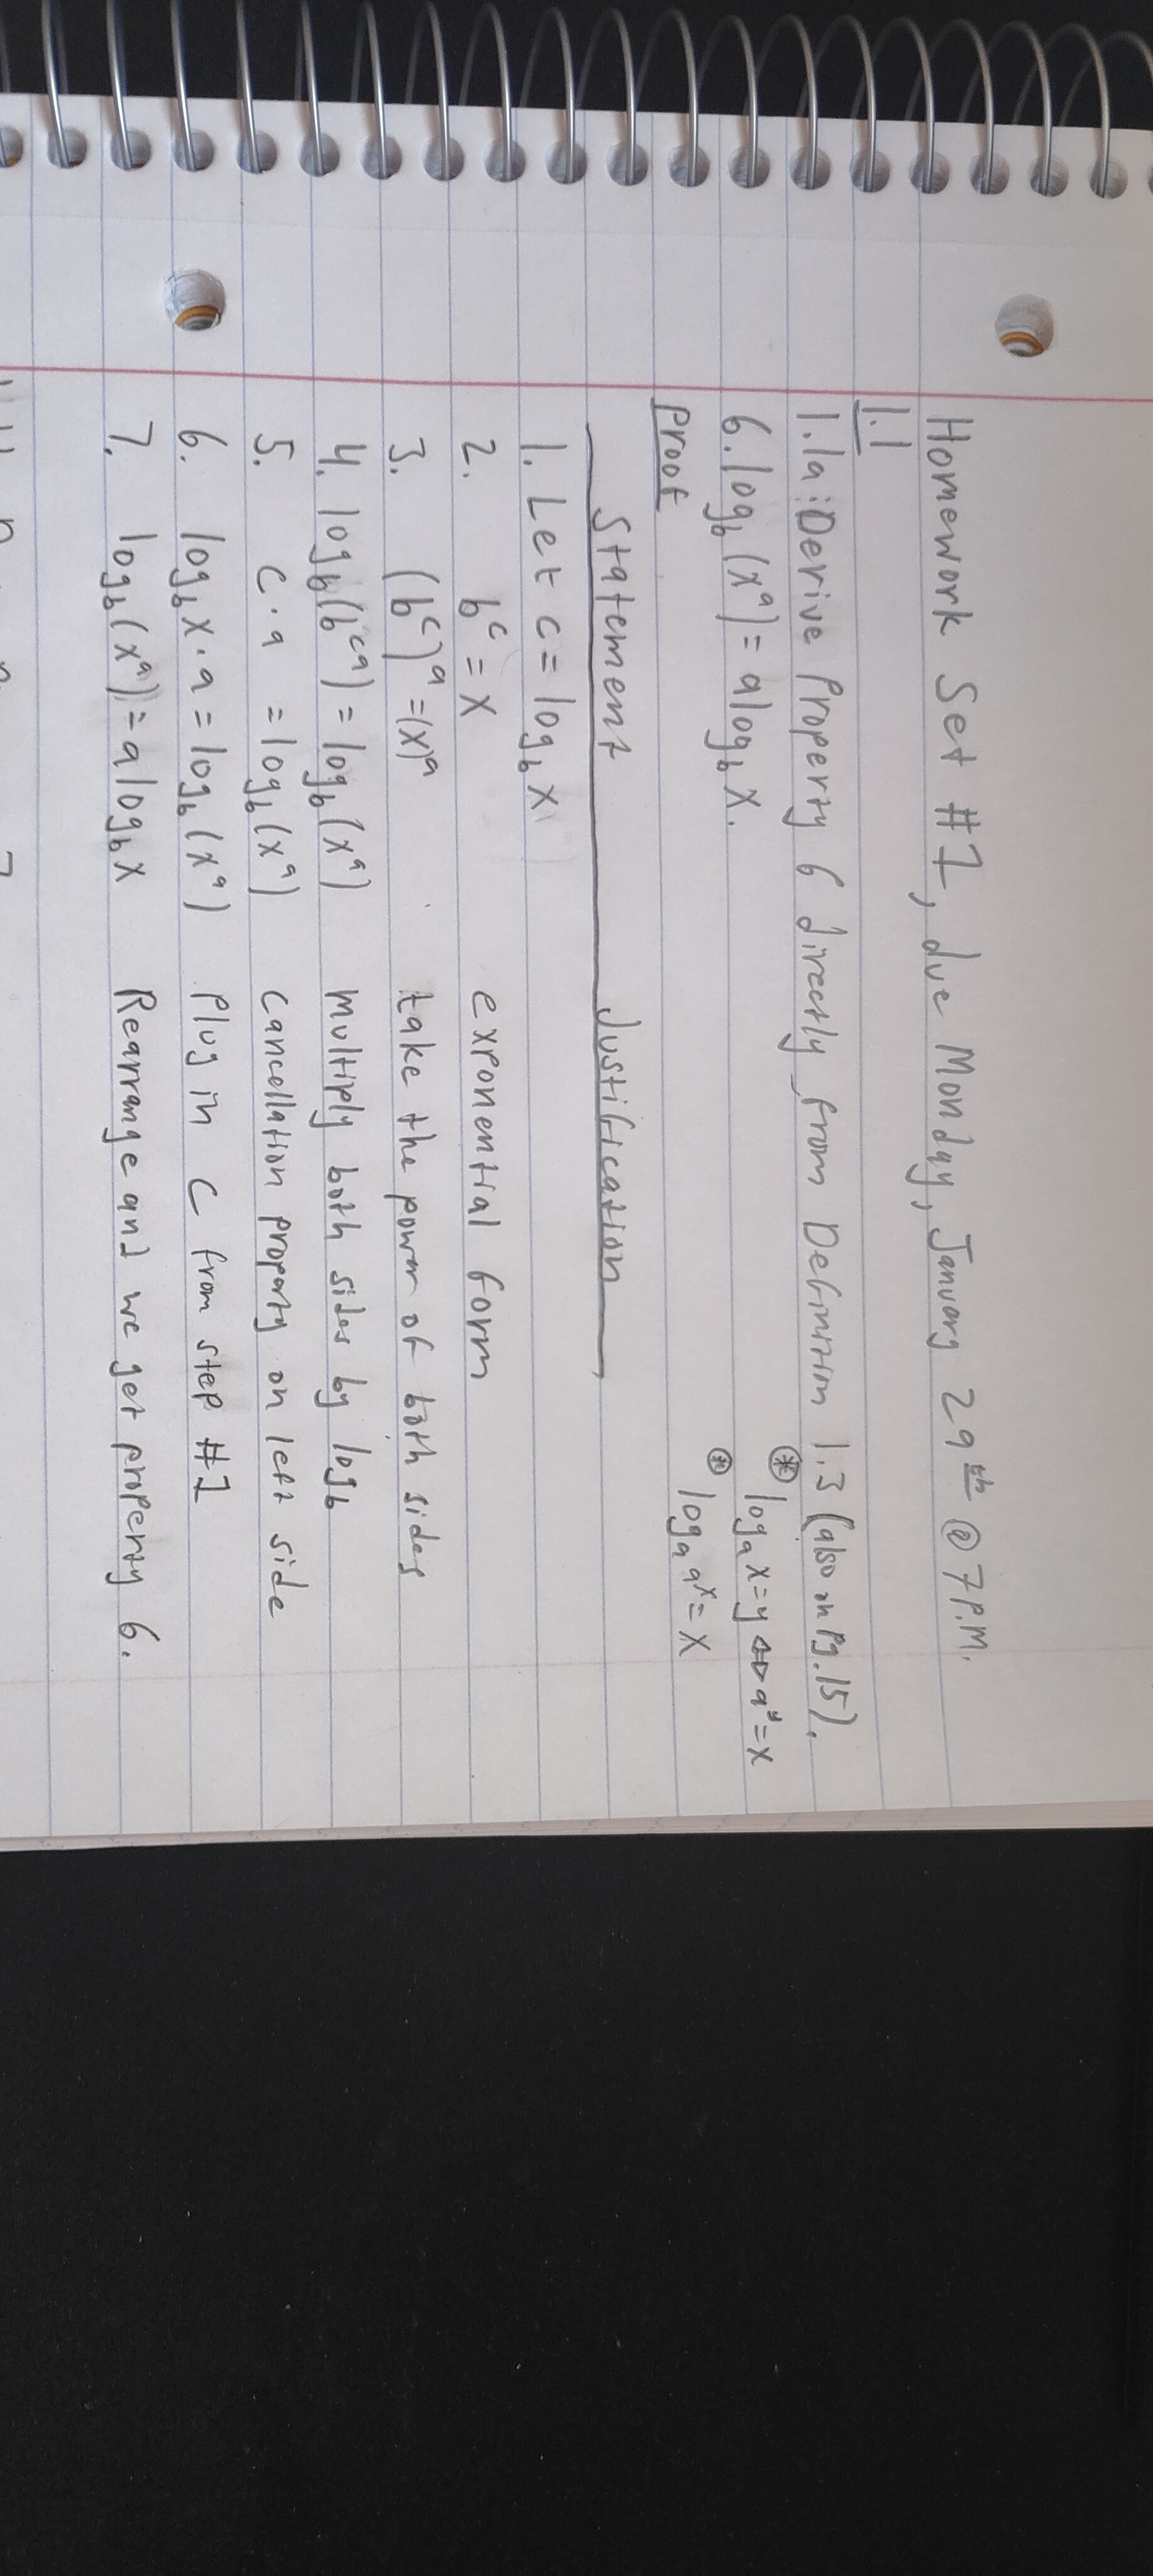 Homework Set #1, due Monday, January 29th @ 7P.M.
1.1
1.1a: Derive Property 6 directly from Definition 1.3 (also on Pg. 15).
6. log_b (x^a) = a log_b x.
⊛ log_a x = y ⇔ a^y = x
⊛ log_a a^x = x
Proof
Statement Justification
1. Let c = log_b x
2. b^c = x exponential form
3. (b^c)^a = (x)^a take the power of both sides
4. log_b (b^ca) = log_b (x^a) multiply both sides by log_b
5. c · a = log_b (x^a) cancellation property on left side
6. log_b x · a = log_b (x^a) Plug in c from step #1
7. log_b (x^a) = a log_b x Rearrange and we get property 6.